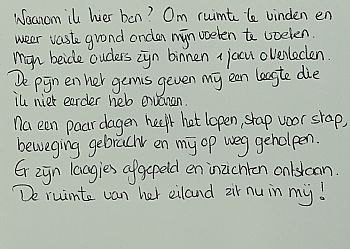 Waarom ik hier ben? Om ruimte te vinden en
weer vaste grond onder mijn voeten te voelen.
Mijn beide ouders zijn binnen 1 jaar overleden.
De pijn en het gemis geven mij een leegte die
ik niet eerder heb ervaren.
Na een paar dagen heeft het lopen, stap voor stap,
beweging gebracht en mij op weg geholpen.
Er zijn laagjes afgepeld en inzichten ontstaan.
De ruimte van het eiland zit nu in mij!